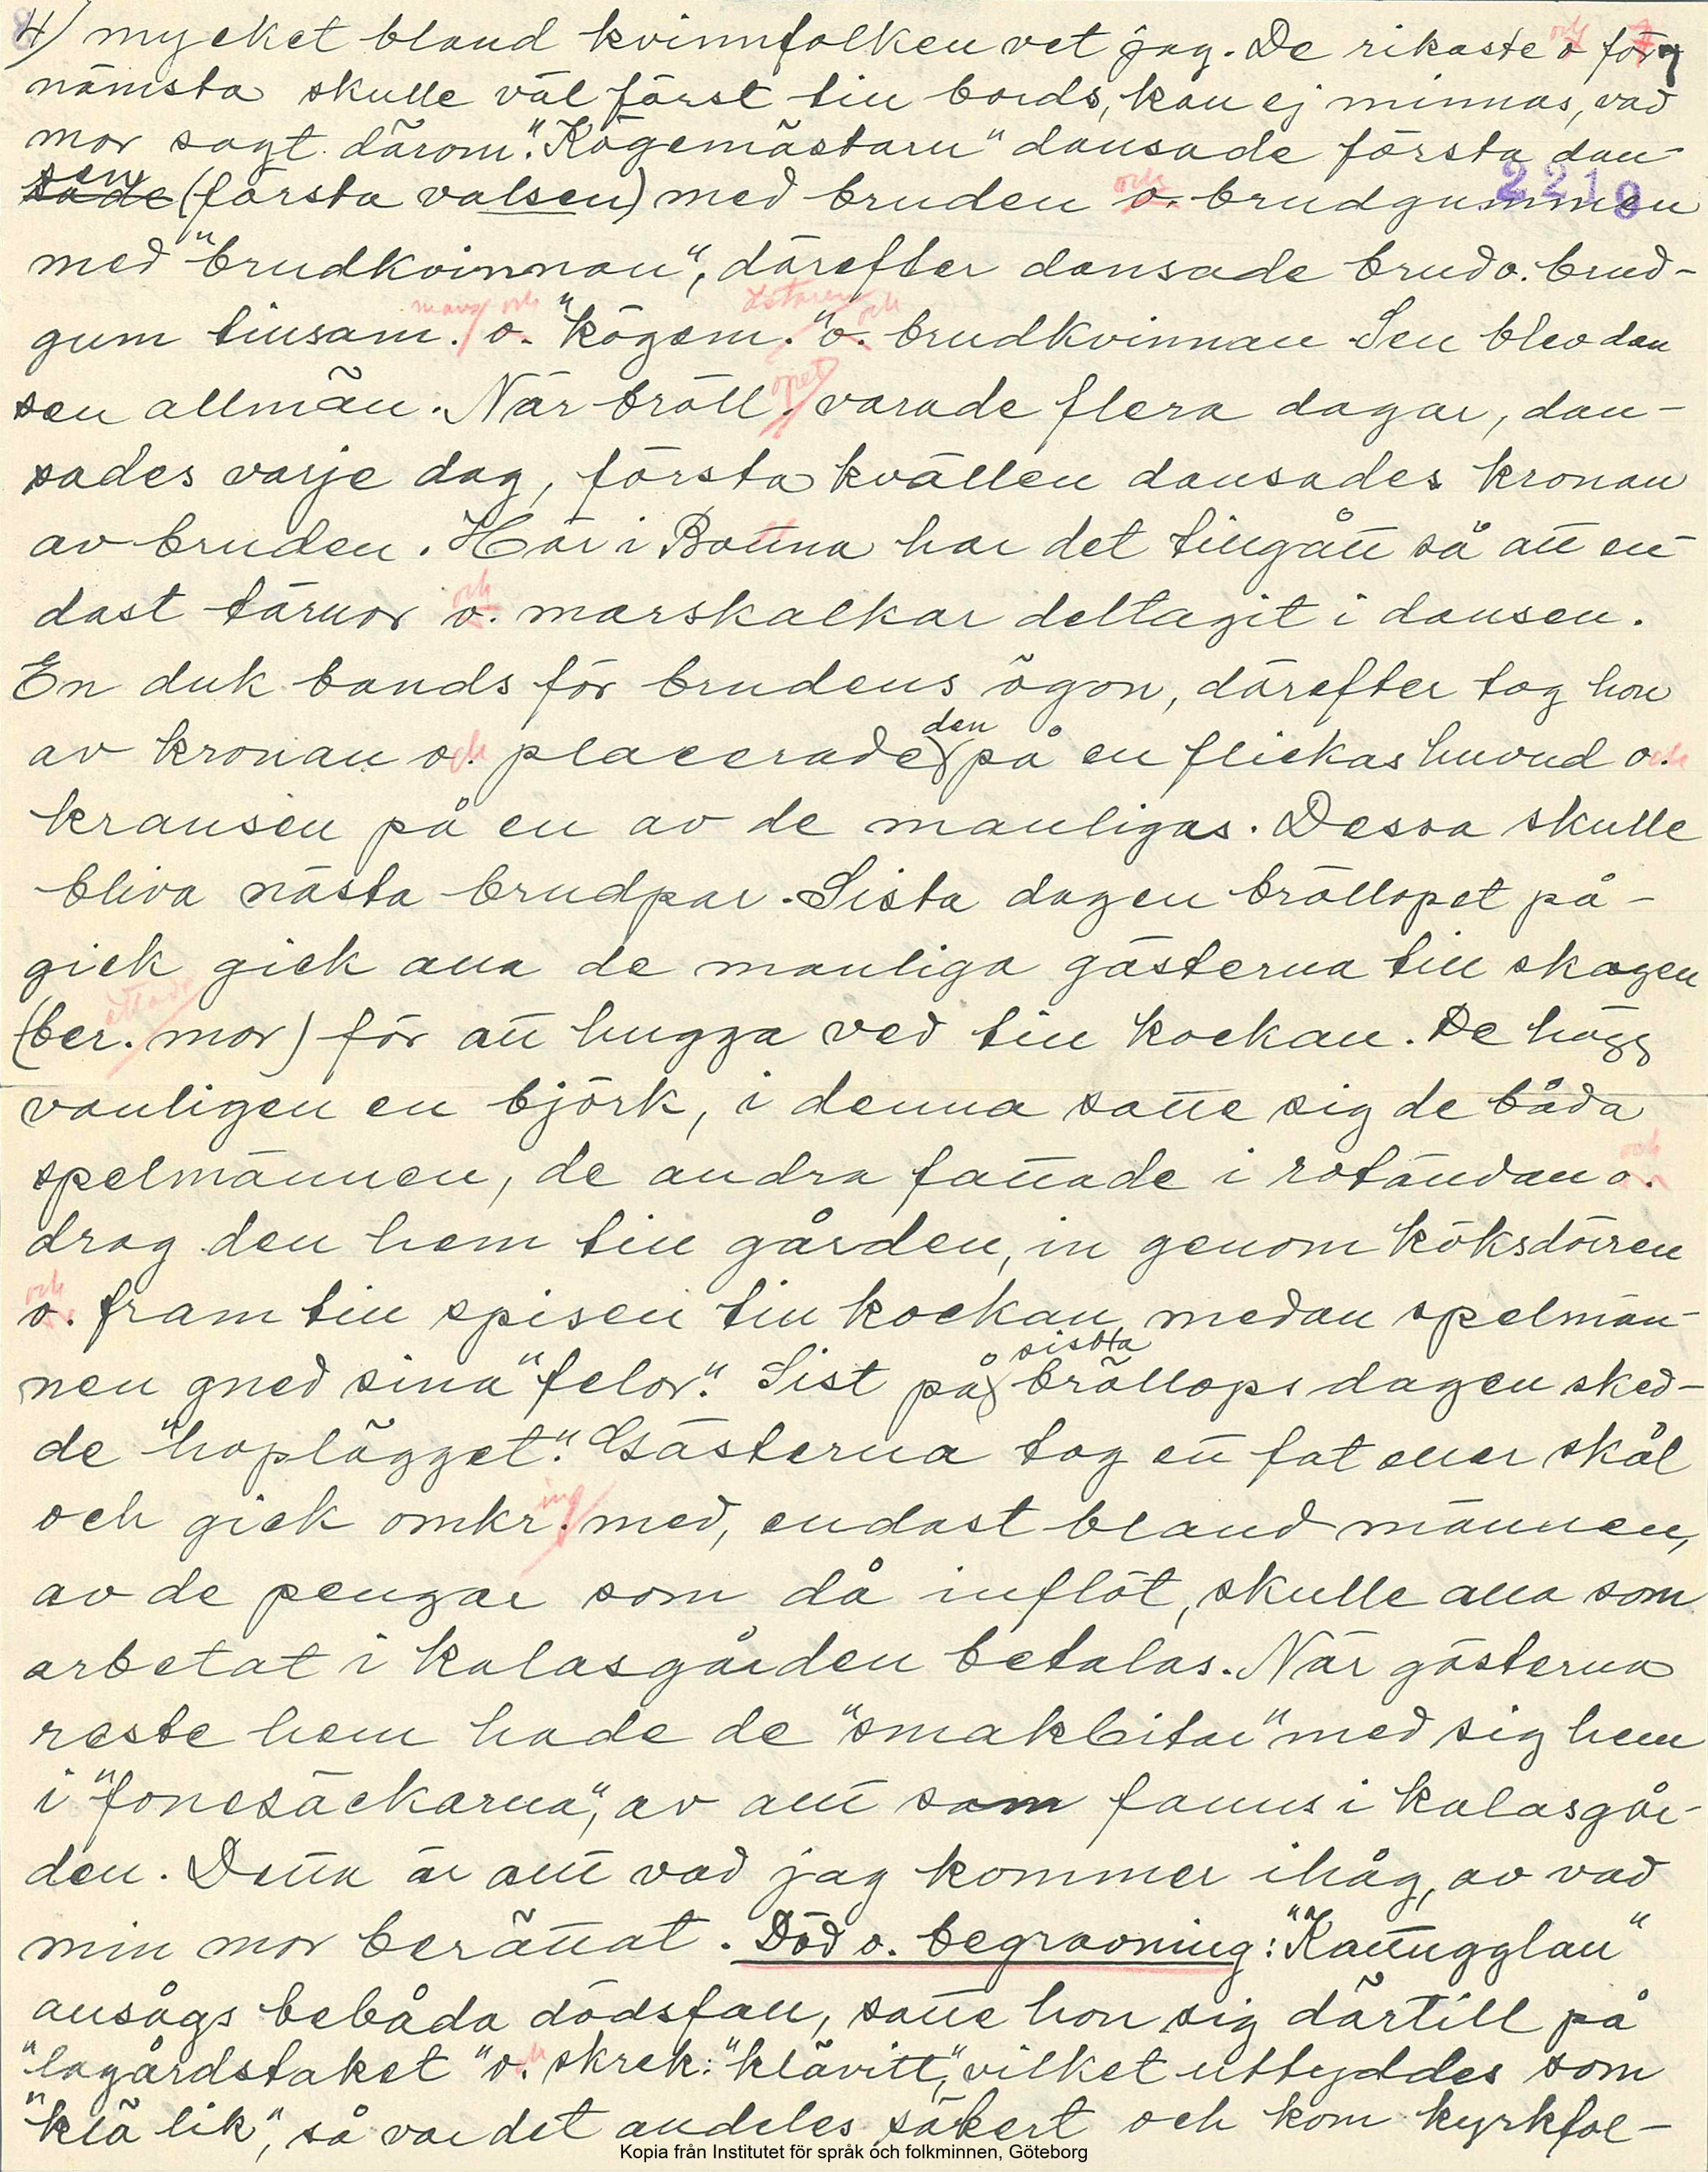 4) mycket bland kvinnfolken vet jag. De rikaste o för
nämsta skulle väl först till bords, kan ej minnas, vad
mor sagt därom. "Kögemästarn" dansade första dan-
sen
sade (första valsen) med bruden o. brudgummen
2219
med "brudkvinnan", därefter dansade brud o. brud-
gum tillsam. o. "kögem." o. brudkvinnan Sen blev dan
sen allmän. När bröll. varade flera dagar, dan-
sades varje dag, första kvällen dansades kronan
av bruden. Här i Bottna har det tillgått så att en-
dast tärnor o. marskalkar deltagit i dansen.
En duk bands för brudens ögon, därefter tog hon
av kronan o. placerade den på en flickas huvud o.
kransen på en av de manligas. Dessa skulle
bliva nästa brudpar. Sista dagen bröllopet på-
gick gick alla de manliga gästerna till skogen
(ber. mor) för att hugga ved till kockan. De högg
vanligen en björk, i denna satte sig de båda
spelmännen, de andra fattade i rotändan o.
drog den hem till gården, in genom köksdörren
o. fram till spisen till kockan, medan spelmän-
nen gned sina "felor". Sist på sista bröllopsdagen sked-
de "hoplägget". Gästerna tog ett fat eller skål
och gick omkr. med, endast bland männen,
av de pengar som då inflöt, skulle alla som
arbetat i kalasgården betalas. När gästerna
reste hem hade de "smakbitar" med sig hem
i "fonesäckarna", av allt som fanns i kalasgår-
den. Detta är allt vad jag kommer ihåg, av vad
min mor berättat. Död o. begravning: "Kattugglan"
ansågs bebåda dödsfall, satte hon sig därtill på
"lagårdstaket" o. skrek: "klävitt", vilket uttyddes som
"klä lik", så var det alldeles säkert och kom kyrkfol-
Kopia från Institutet för språk och folkminnen, Göteborg